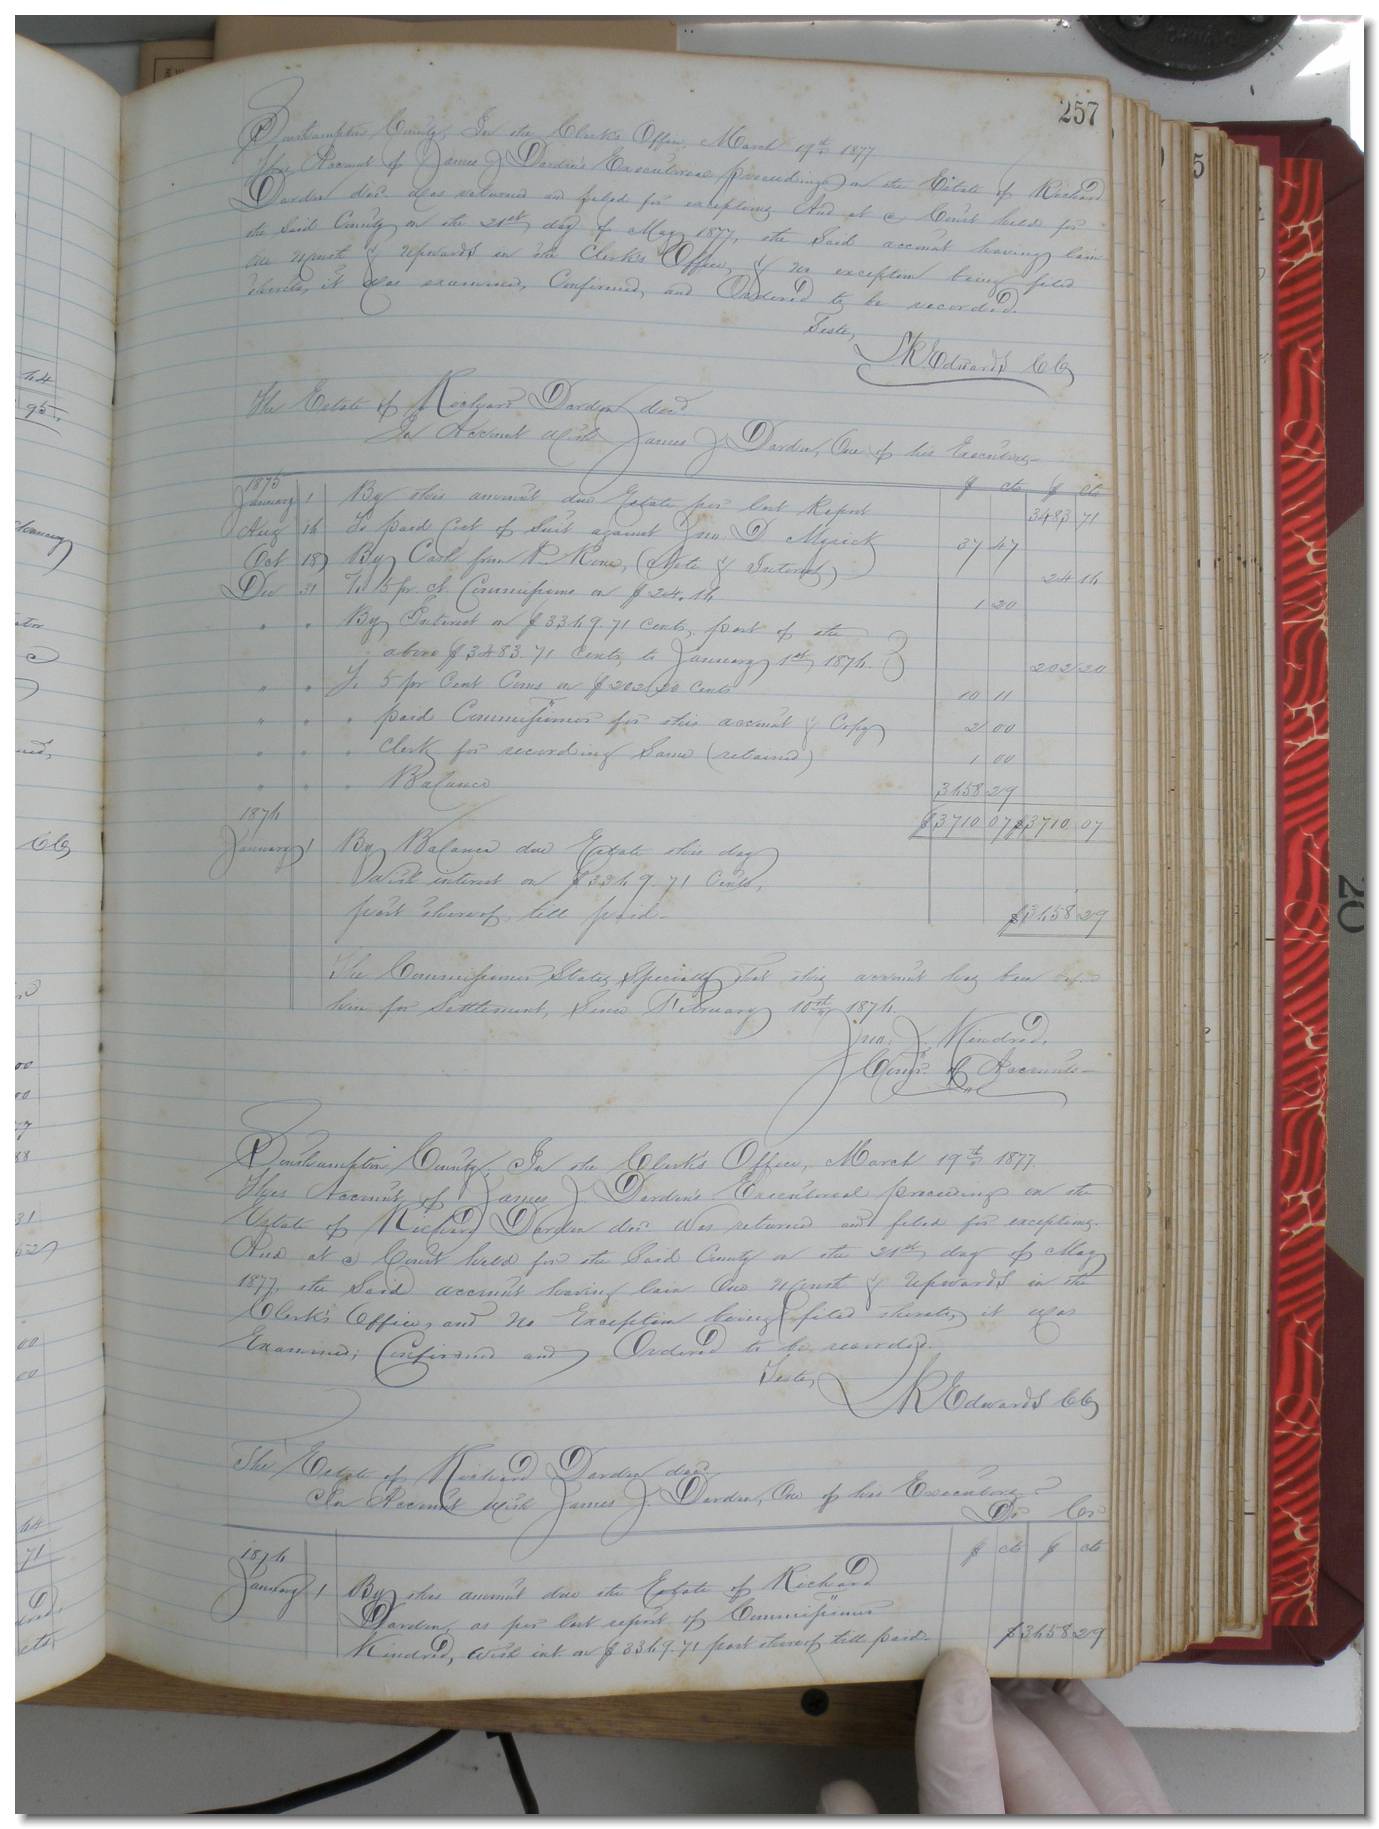 257
Southampton County, In the Clerk's Office, March 19th 1877
This Account of James J. Darden's Executorial proceedings on the Estate of Richard
Darden decd was returned and filed for exceptions. And at a Court held for
the Said County on the 21st day of May 1877, the Said account having lain
one month & upwards in the Clerk's Office, & no exception being filed
thereto, it was examined, Confirmed, and Ordered to be recorded.
Teste,
L R Edwards CC
The Estate of Richard Darden decd
In Account with James J. Darden, One of his Executors
$ cts $ cts
1875
January 1 By this amount due Estate per last Report 3483 71
Aug 16 To paid Cost of Suit against Jno. D Myrick 37 47
Oct 18 By Cash from (Note & Interest) 24 16
Dec 31 To 5 pr. ct. Commissions on $24.16 1 20
" " By Interest on $3369.71 cents, part of the
above $3483.71 Cents, to January 1st 1876. 202 20
" " To 5 pr Cent Coms on $202.20 Cents 10 11
" " " paid Commissioner for this account & Copy 2 00
" " " Clerk for recording Same (retained) 1 00
" " " Balance 3658 29
$3710 07 $3710 07
1876
January 1 By Balance due Estate this day
With interest on $3369.71 Cents,
part thereof, till paid $3658 29
The Commissioner States Specially that this account has been before
him for Settlement, Since February 10th 1876.
Jno. J. Kindred,
Comr. of Accounts
Southampton County, In the Clerk's Office, March 19th 1877
This Account of James J Darden's Executorial proceedings on the
Estate of Richard Darden decd was returned and filed for exceptions.
And at a Court held for the Said County on the 21st day of May
1877, the Said account having lain One Month & Upwards in the
Clerk's Office, and No Exception being filed thereto, it was
Examined, Confirmed and Ordered to be recorded.
Teste,
L R Edwards CC
The Estate of Richard Darden decd
In Account with James J. Darden, One of his Executors
Dr Cr
$ cts $ cts
1876
January 1 By this amount due the Estate of Richard
Darden, as per last report of Commissioner
Kindred, with int. on $3369.71 part thereof till paid. $3658 29